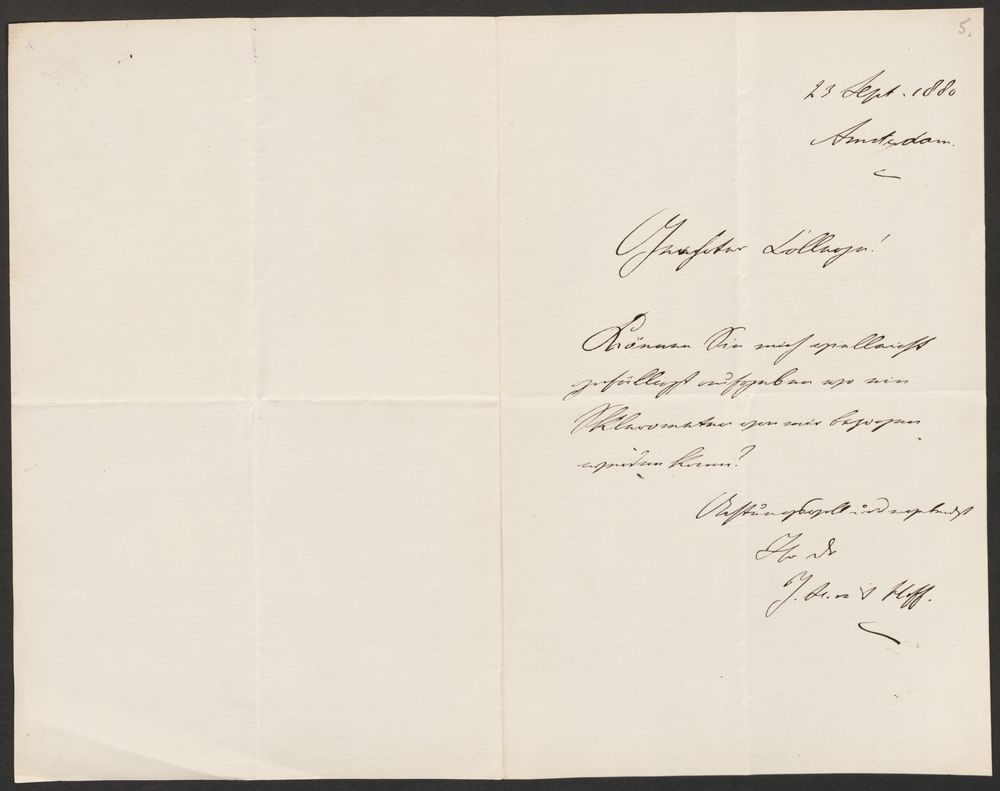 5.
23 Sept. 1880
Amsterdam.
Geehrter College!
Können Sie mich vielleicht
gefälligst aufgeben wo ein
Sklerometer von mir bezogen
werden kann?
Achtungsvoll und ergebenst
Ihr Dr
J. H. van 't Hoff.